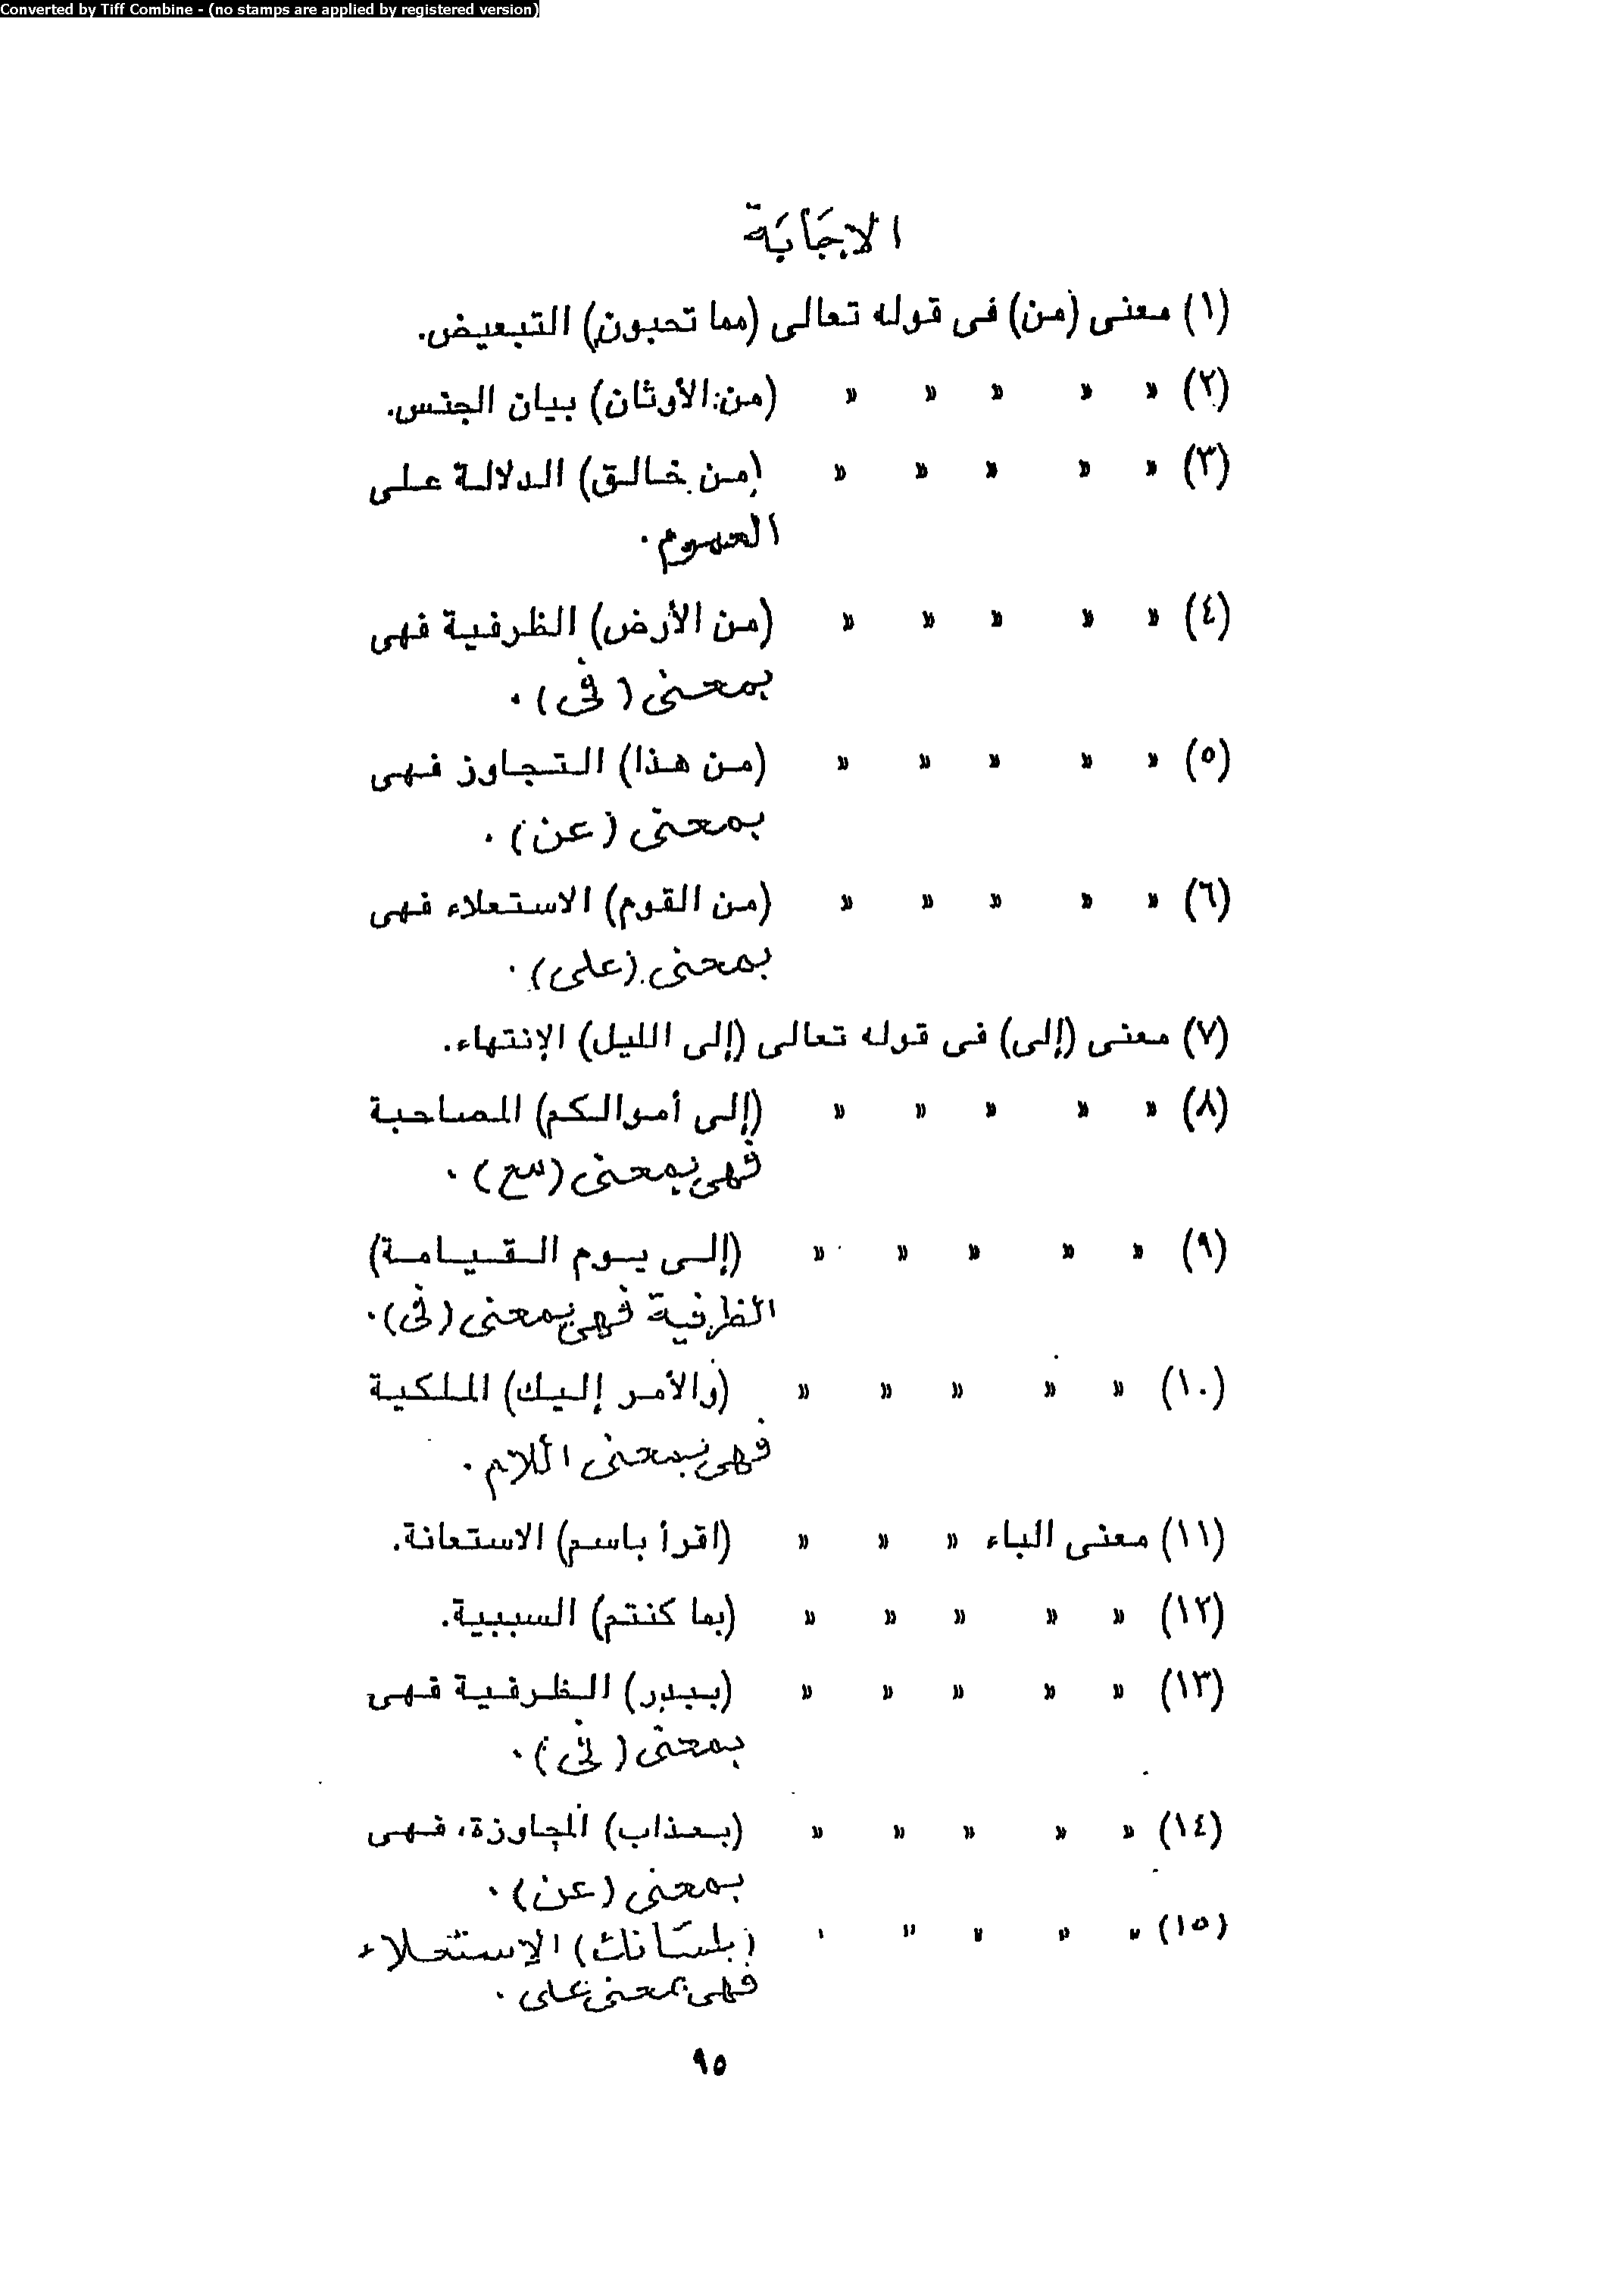 Converted by Tiff Combine - (no stamps are applied by registered version)
الإجَابَة
(١) معنى (من) فى قوله تعالى (مما تحبون) التبعيض.
(٢) » » » » » (من الأوثان) بيان الجنس.
(٣) » » » » » (من خالق) الدلالة على
العموم.
(٤) » » » » » (من الأرض) الظرفية فهى
بمعنى (فى).
(٥) » » » » » (من هذا) التجاوز فهى
بمعنى (عن).
(٦) » » » » » (من القوم) الاستعلاء فهى
بمعنى (على).
(٧) معنى (إلى) فى قوله تعالى (إلى الليل) الإنتهاء.
(٨) » » » » » (إلى أموالكم) المصاحبة
فهى بمعنى (مع).
(٩) » » » » » (إلى يوم القيامة)
الظرفية فهى بمعنى (فى).
(١٠) » » » » » (والأمر إليك) الملكية
فهى بمعنى اللام.
(١١) معنى الباء » » » (اقرأ باسم) الاستعانة.
(١٢) » » » » » (بما كنتم) السببية.
(١٣) » » » » » (ببدر) الظرفية فهى
بمعنى (فى).
(١٤) » » » » » (بعذاب) المجاوزة، فهى
بمعنى (عن).
(١٥) » » » » » (بلسَانك) الإستعلاء
فهى بمعنى على.
٩٥